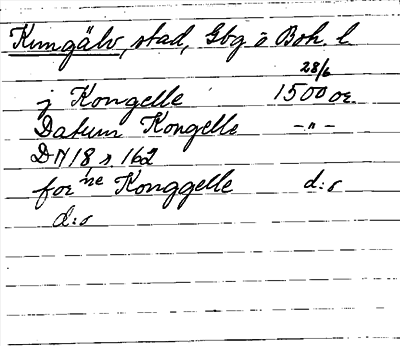 Kungälv, stad, Gbg o Boh. l.
28/6
j Kongelle 1500 or.
Datum Kongelle -"-
DN 18 s. 162
for ne Konggelle d:o
d:o